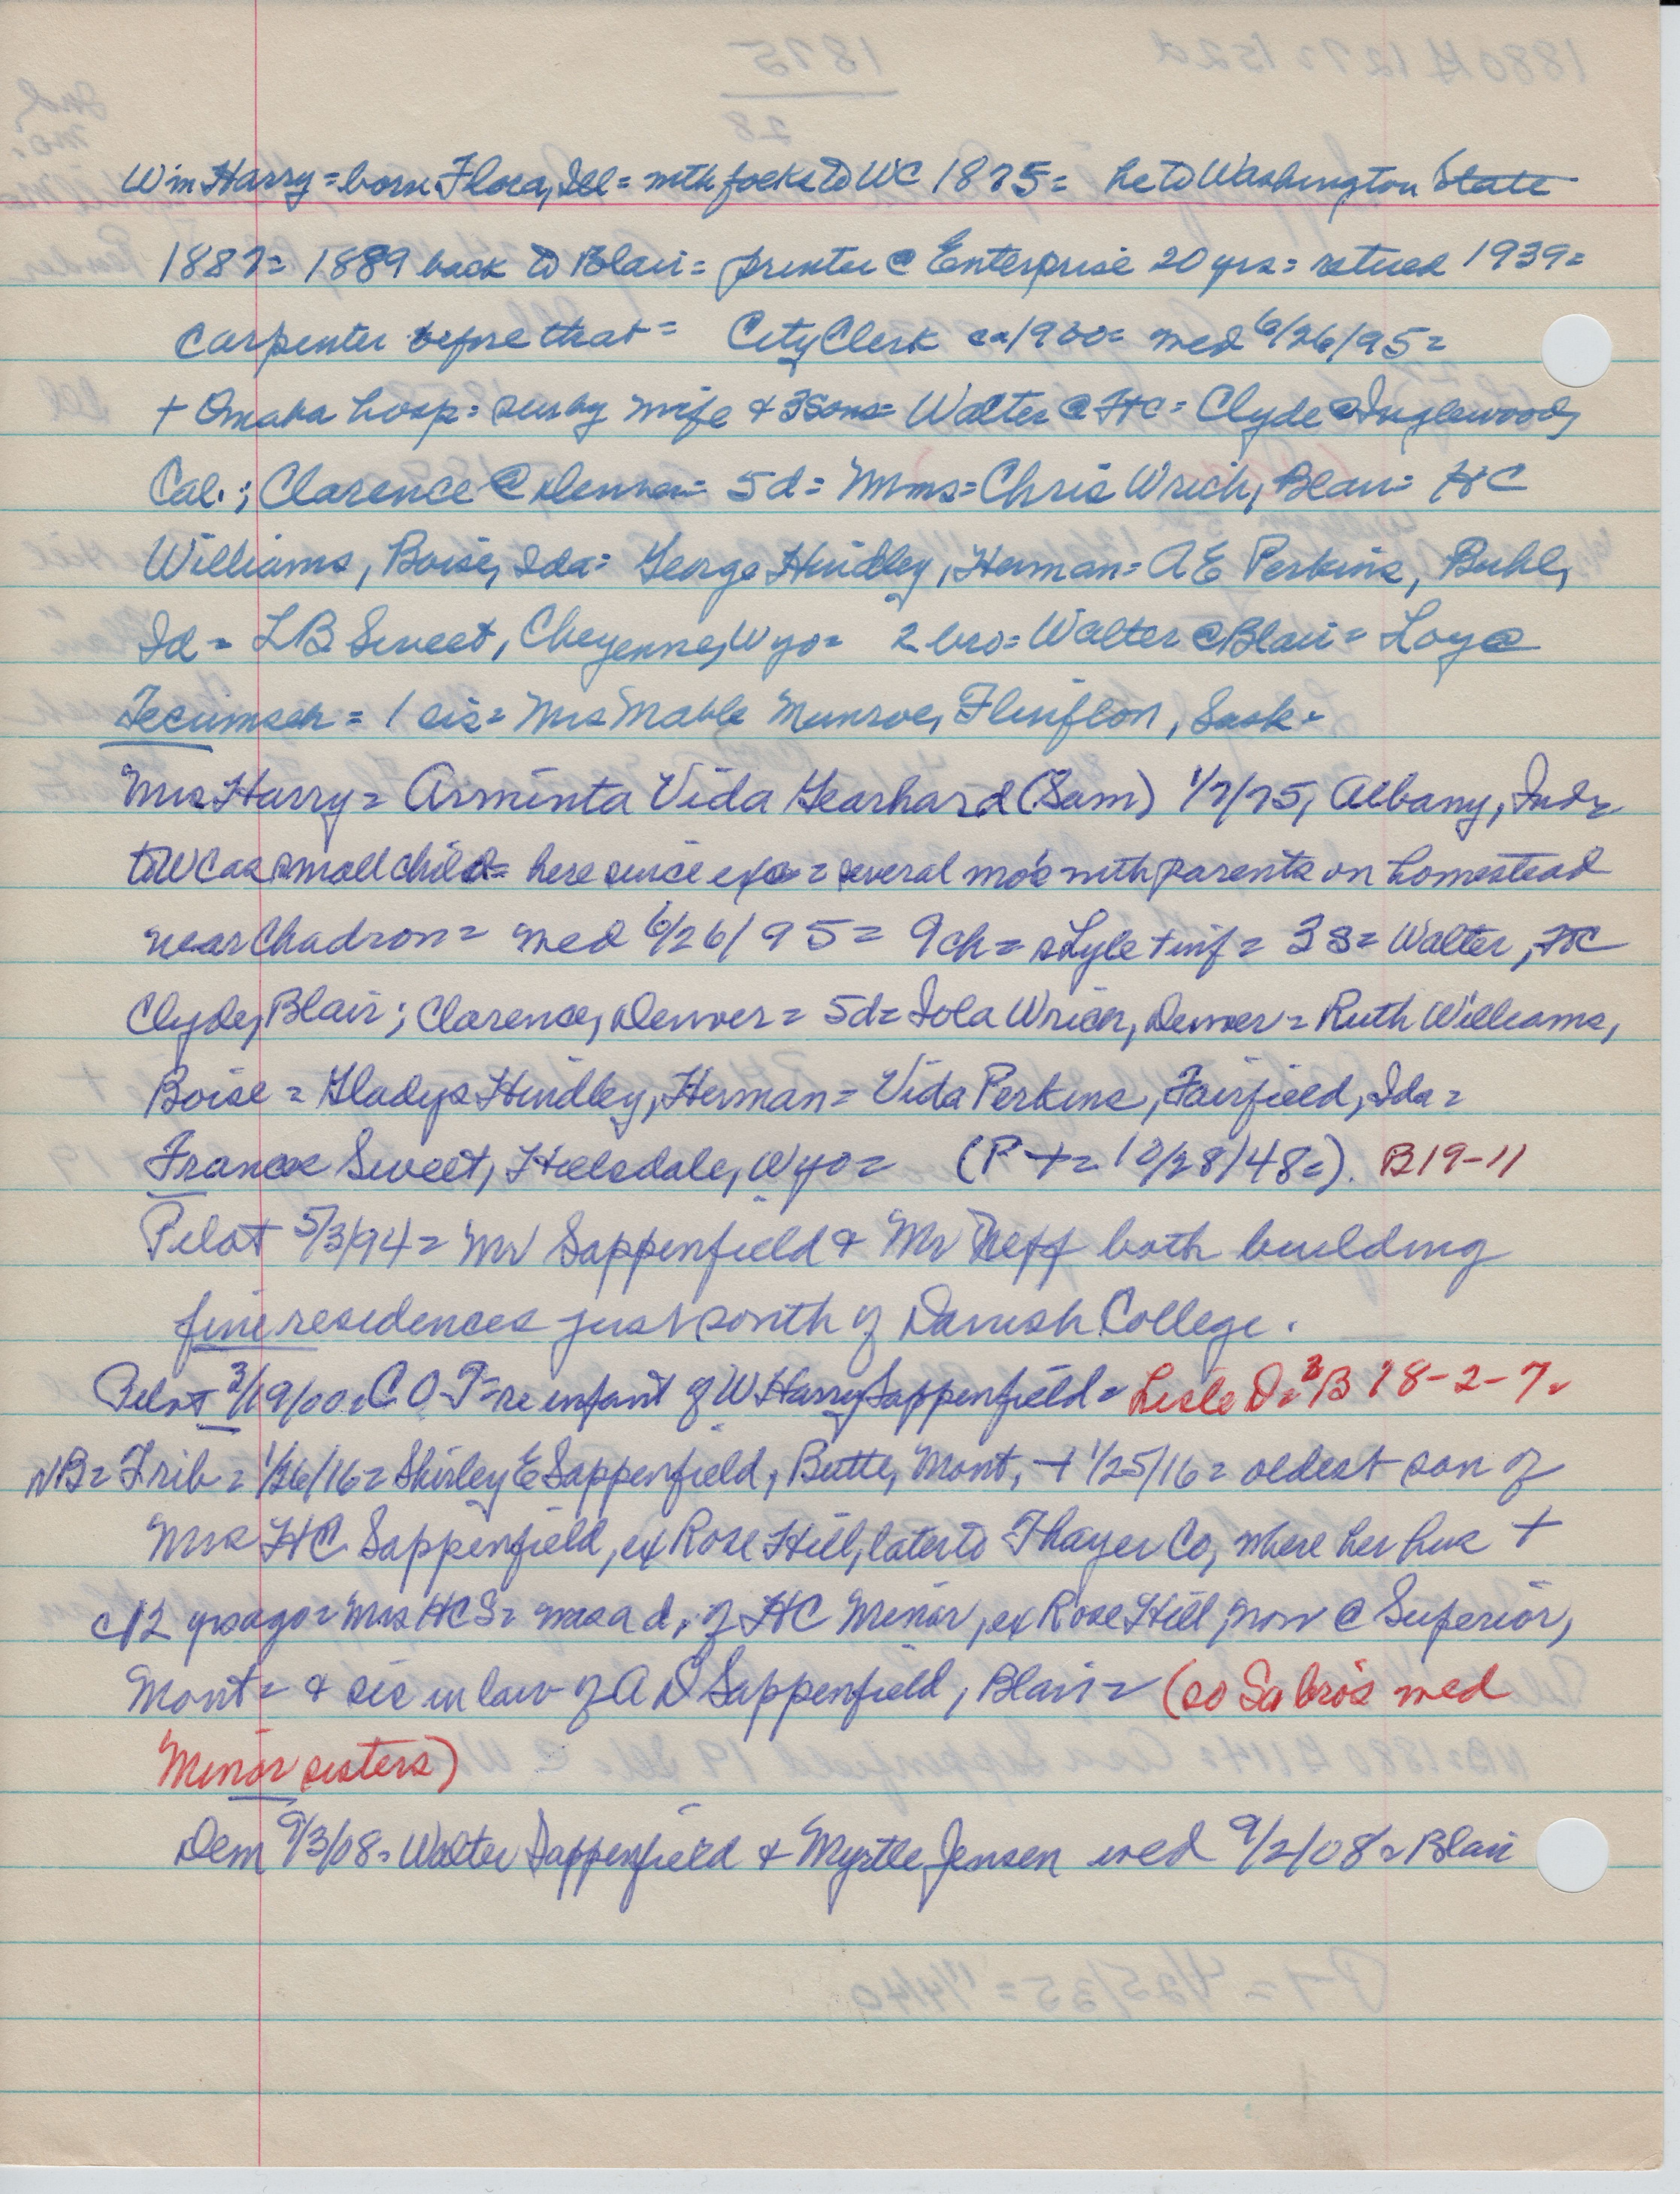 Wm Harry = born Flora, Ill = with folks to WC 1875 = he to Washington State
1887 = 1889 back to Blair = printer @ Enterprise 20 yrs = retired 1939 =
carpenter before that = City Clerk ca 1900 = med 6/26/95 =
+ Omaha hosp = sur by wife & 3 sons = Walter @ FtC = Clyde @ Inglewood,
Cal.; Clarence @ Denver = 5d = Mmes = Chris Wrich, Blair = HC
Williams, Boise, Ida = George Hindley, Herman = A E Perkins, Buhl,
Id = LB Sweet, Cheyenne, Wyo = 2 bro = Walter @ Blair = Loy @
Tecumseh = 1 sis = Mrs Mable Munroe, Flinflon, Sask =
Mrs Harry = Arminta Vida Gearhard (Sam) 1/7/75, Albany, Ind =
to WC as small child = here since exc = several mo's with parents on homestead
near Chadron = med 6/26/95 = 9 ch = Lyle + inf = 3 s = Walter, FtC
Clyde, Blair; Clarence, Denver = 5d = Iola Wrich, Denver = Ruth Williams,
Boise = Gladys Hindley, Herman = Vida Perkins, Fairfield, Ida =
Frances Sweet, Hillsdale, Wyo = (P + = 10/28/48 =). B19-11
Pilot 5/3/94 = Mr Sappenfield & Mr Neff both building
fine residences just south of Danish College.
Pilot 3/19/00 = C O T = re infant of W Harry Sappenfield = Lisle D = 3/B 18-2-7 =
NB = Trib = 1/26/16 = Shirley E Sappenfield, Butte, Mont, + 1/25/16 = oldest son of
Mrs HC Sappenfield, ex Rose Hill, later to Thayer Co, where her hus +
c 12 yrs ago = Mrs HCS = was a d. of HC Minor, ex Rose Hill, now @ Superior,
Mont = & sis in law of A D Sappenfield, Blair = (so Sa bro's med
Minor sisters)
Dem 9/3/08 = Walter Sappenfield & Myrtle Jensen wed 9/2/08 = Blair